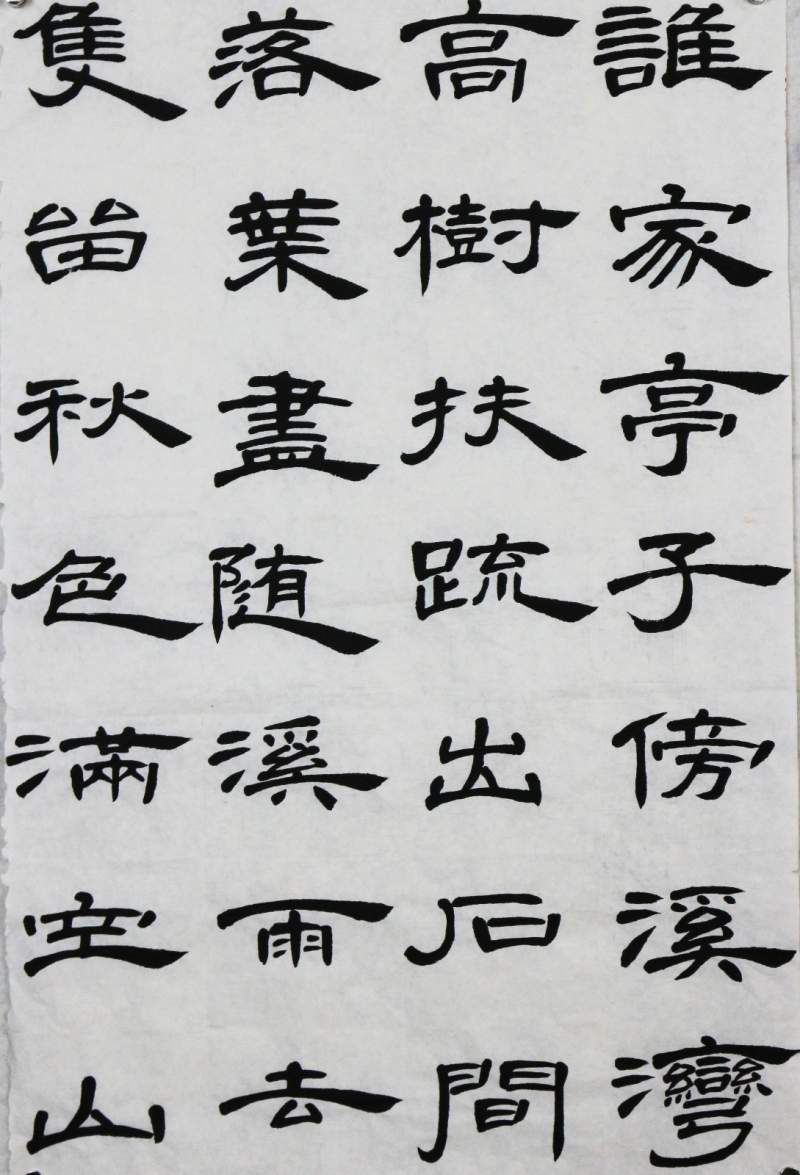 誰家亭子傍溪灣
高樹扶疏出石間
落葉盡随溪雨去
隻留秋色滿空山